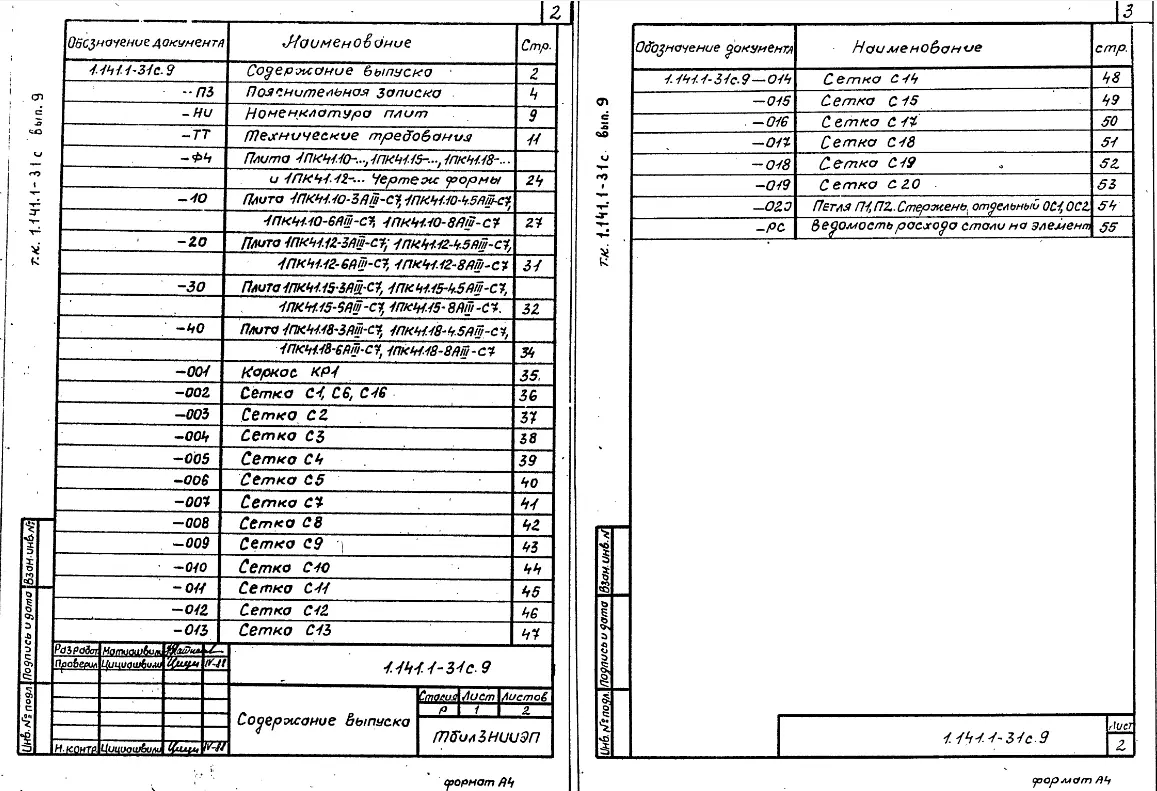 2
Обозначение документа Наименование Стр.
1.141.1-31с.9 Содержание выпуска 2
-ПЗ Пояснительная записка 4
-НИ Номенклатура плит 9
-ТТ Технические требования 11
-ФЧ Плита 1ПК41.10-..., 1ПК41.15-..., 1ПК41.18-...
и 1ПК41.12-... Чертеж формы 24
-10 Плита 1ПК41.10-3АIII-С7, 1ПК41.10-4.5АIII-С7,
1ПК41.10-6АIII-С7, 1ПК41.10-8АIII-С7 27
-20 Плита 1ПК41.12-3АIII-С7, 1ПК41.12-4.5АIII-С7,
1ПК41.12-6АIII-С7, 1ПК41.12-8АIII-С7 31
-30 Плита 1ПК41.15-3АIII-С7, 1ПК41.15-4.5АIII-С7,
1ПК41.15-6АIII-С7, 1ПК41.15-8АIII-С7. 32
-40 Плита 1ПК41.18-3АIII-С7, 1ПК41.18-4.5АIII-С7,
1ПК41.18-6АIII-С7, 1ПК41.18-8АIII-С7 34
-001 Каркас КР1 35
-002 Сетка С1, С6, С16 36
-003 Сетка С2 37
-004 Сетка С3 38
-005 Сетка С4 39
-006 Сетка С5 40
-007 Сетка С7 41
-008 Сетка С8 42
-009 Сетка С9 43
-010 Сетка С10 44
-011 Сетка С11 45
-012 Сетка С12 46
-013 Сетка С13 47
т.к. 1.141.1-31с вып. 9
Инв.№ подл. Подпись и дата Взам.инв.№
Разработ. Матиашвили
Проверил Цициашвили IV-88
Н.контр. Цициашвили IV-88
1.141.1-31с.9
Содержание выпуска
Стадия Лист Листов
Р 1 2
ТбилЗНИИЭП
формат А4
3
Обозначение документа Наименование стр.
1.141.1-31с.9-014 Сетка С14 48
-015 Сетка С15 49
-016 Сетка С17 50
-017 Сетка С18 51
-018 Сетка С19 52
-019 Сетка С20 53
-020 Петля П1, П2. Стержень отдельный ОС1, ОС2 54
-РС Ведомость расхода стали на элемент 55
т.к. 1.141.1-31с вып. 9
Инв.№ подл. Подпись и дата Взам.инв.№
1.141.1-31с.9
Лист
2
формат А4